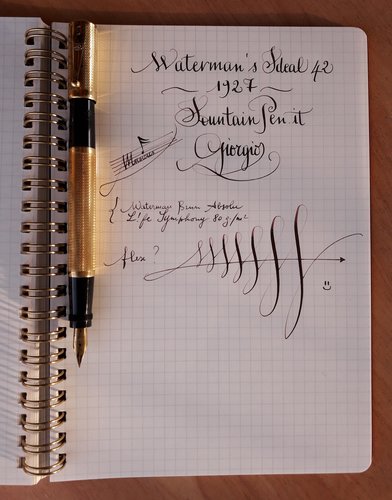 Waterman's Ideal 42
~ 1927 ~
Fountain Pen it
Giorgio
{ Waterman Brun Absolu
L!fe Symphony 80 g/m²
flex ?